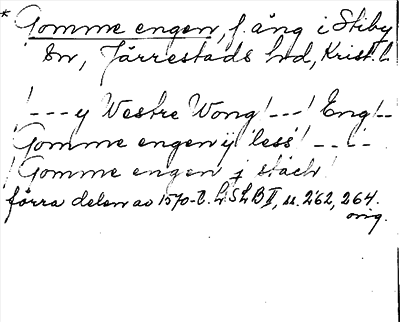 * Gomme engen, f. äng i Stiby
sn, Järrestads hd, Krist. l.
! --- y Westre Wong! ---! Eng! --
Gomme engen ÿ less! -- ! --
! Gomme engen j stäch!
förra delen av 1570-t. LSLB II, s. 262, 264.
orig.